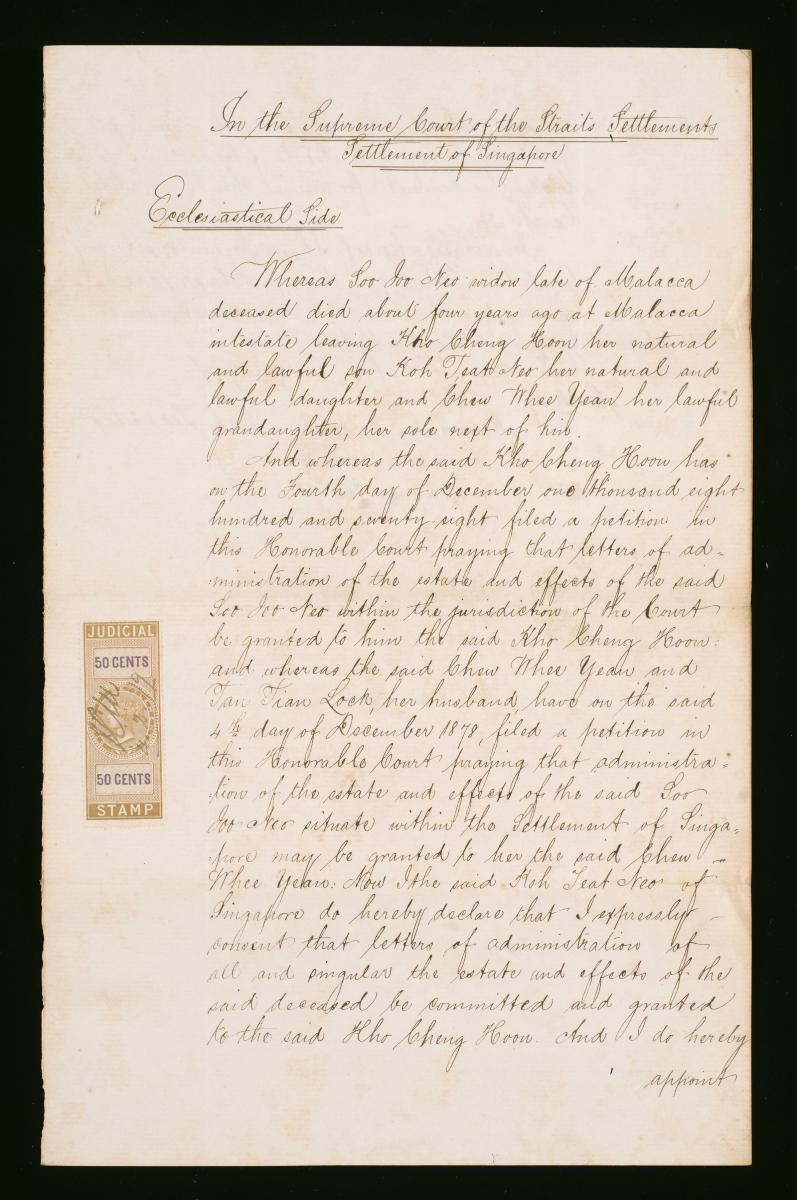 In the Supreme Court of the Straits Settlements
Settlement of Singapore
Ecclesiastical Side
Whereas Soo Joo Neo widow late of Malacca
deceased died about four years ago at Malacca
intestate leaving Kho Cheng Hoon her natural
and lawful son Koh Teat Neo her natural and
lawful daughter and Chew Whee Yean her lawful
grandaughter, her sole next of kin.
And whereas the said Kho Cheng Hoon has
on the Fourth day of December one thousand eight
hundred and seventy eight filed a petition in
this Honorable Court praying that letters of ad=
ministration of the estate and effects of the said
Soo Joo Neo within the jurisdiction of the Court
be granted to him the said Kho Cheng Hoon:
and whereas the said Chew Whee Yean and
Tan Tian Lock, her husband, have on the said
4th day of December 1878, filed a petition in
this Honorable Court praying that administra=
tion of the estate and effects of the said Soo
Joo Neo situate within the Settlement of Singa=
pore may be granted to her the said Chew -
Whee Yean: Now I the said Koh Teat Neo of
Singapore do hereby declare that I expressly -
consent that letters of administration of
all and singular the estate and effects of the
said deceased be committed and granted
to the said Kho Cheng Hoon. And I do hereby
appoint
JUDICIAL
50 CENTS
50 CENTS
STAMP